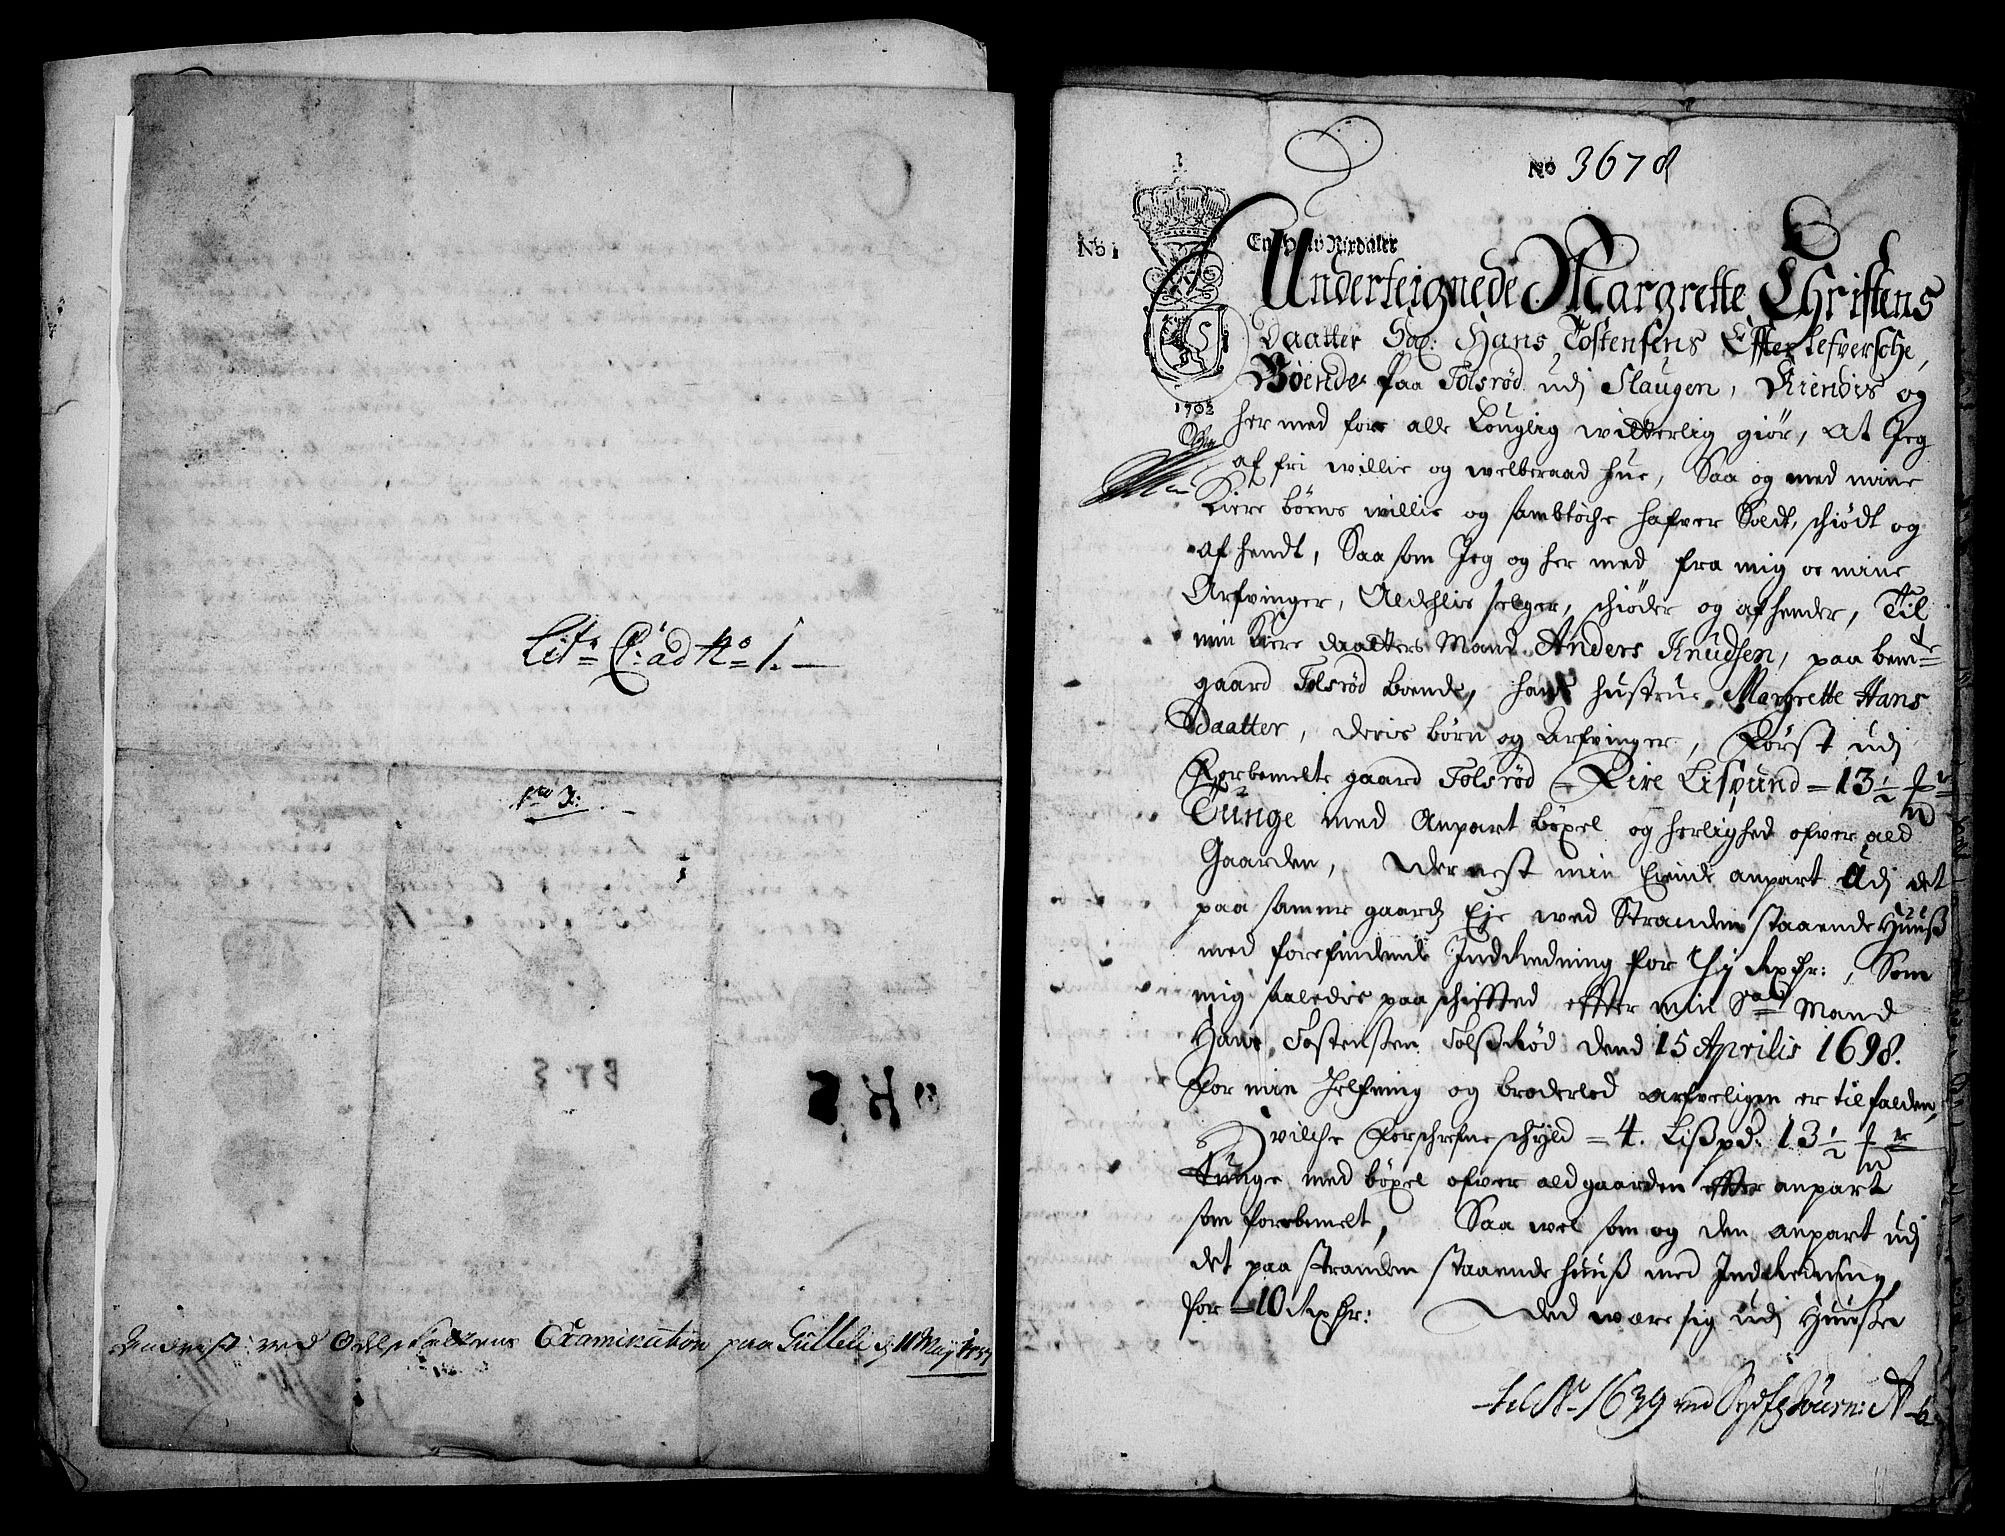 Lit: C: ad No 1.
No 3:
ved Examination paa d 11 Maij
No 3678
No 1
En Half Rixdaler
1703
Underteignede Margrette Christens
Daatter Sal: Hans Tostensens Effterlefversche,
Boende paa Tolsrød udj Slaugen, Kiendis og
her med for alle Louglig witterlig giør, At Jeg
af fri willie og welberaad hue, Saa og med mine
Kiere børns willie og sambtøche hafver Soldt, schiødt og
afhendt, Saa som Jeg og her med fra mig oc mine
Arfvinger, Aldehlis selger, schiøder og afhender, Til
min Kiere daatters Mand Anders Knudsen, paa bemte
gaard Tolsrød boende, hans hustrue Margrette Hans
Daatter, deris børn og Arfvinger, Først udj
Forbemelte gaard Tolsrød = Fire Lispund = 13 1/2 
Tunge med Anpart bøxel og herlighed ofver ald
Gaarden, Dernest min Eiende anpart Udj det
paa samme gaards Eje wed Stranden staaende Huuß
med forefindende Indredning for Thj Rixdr:, Som
mig saaledis paa schifftet effter min Sal Mand
Hans Tostensen Tolsrød dend 15 Aprilis 1698.
For min helfning og broderlod arfveligen er tilfalden,
Hvilche Forschrefne schyld = 4. Lißpd: 13 1/2
Tunge med bøxel ofver ald gaarden effter anpart
som forbemelt, Saa wel som og den anpart udj
det paa stranden staaende huuß med Indredning,
for = 10 Rixdr: Ded være sig udj Huußer
til No 1639 ved